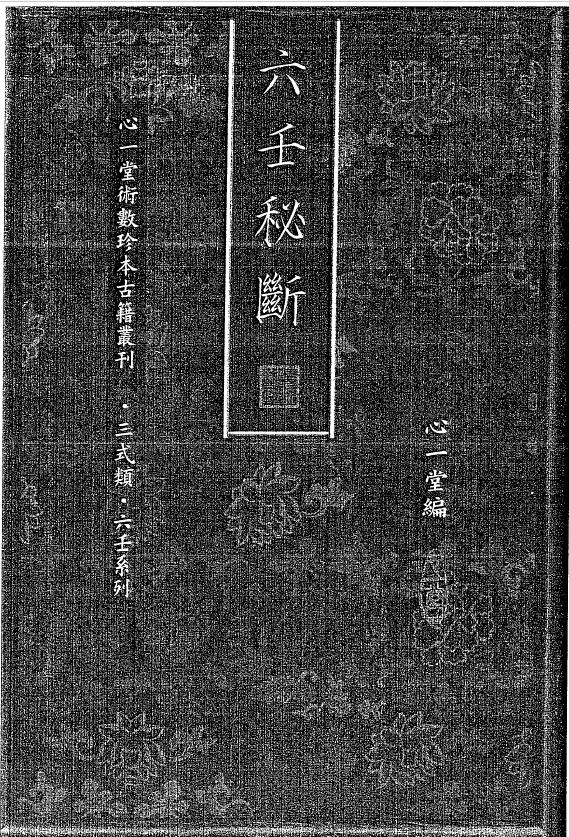 六壬秘斷
心一堂編
心一堂術數珍本古籍叢刊 ・三式類・六壬系列